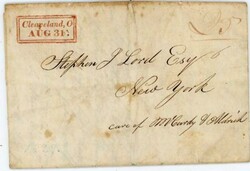 Cleaveland, O.
AUG 31
Stephen J Lord Esqr
New York
care of McCurdy & Aldrich